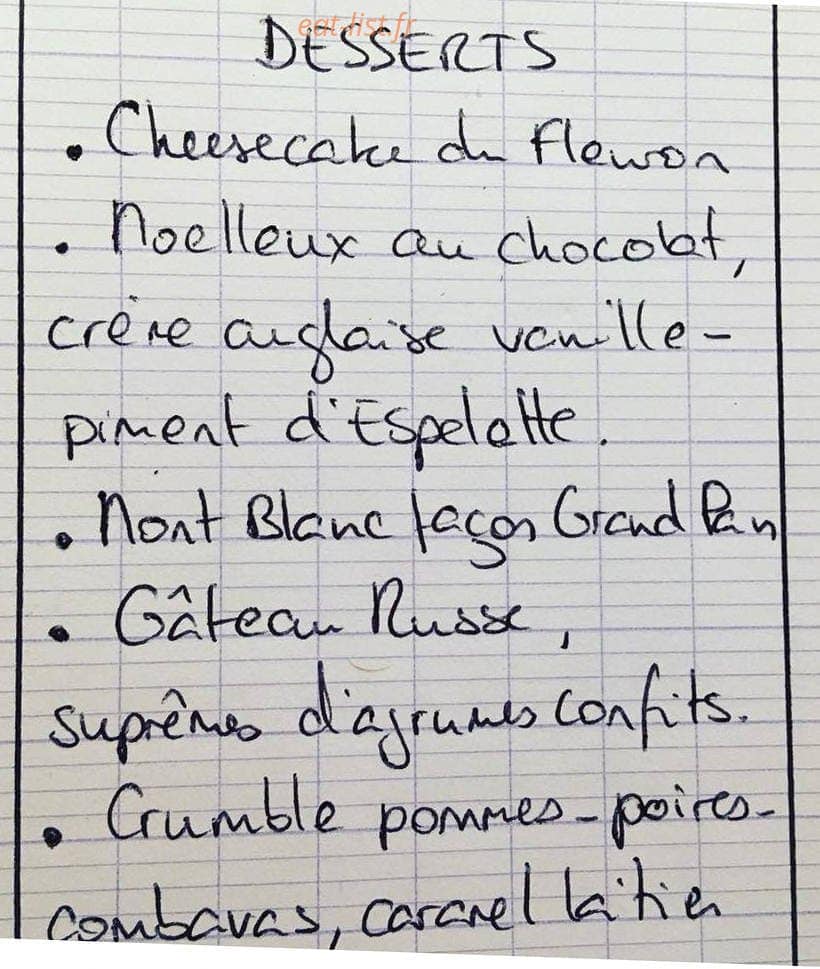 eat-list.fr
DESSERTS
. Cheesecake du Fleuron
. Moelleux au chocolat,
crème anglaise vanille-
piment d'Espelette.
. Mont Blanc façon Grand Pan
. Gâteau Russe,
suprêmes d'agrumes confits.
. Crumble pommes-poires-
combavas, caramel laitier